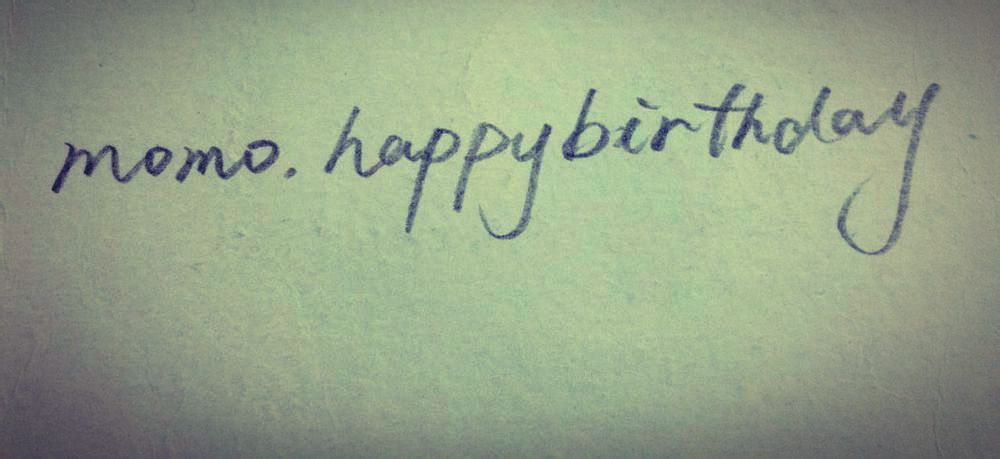 momo. happybirthday